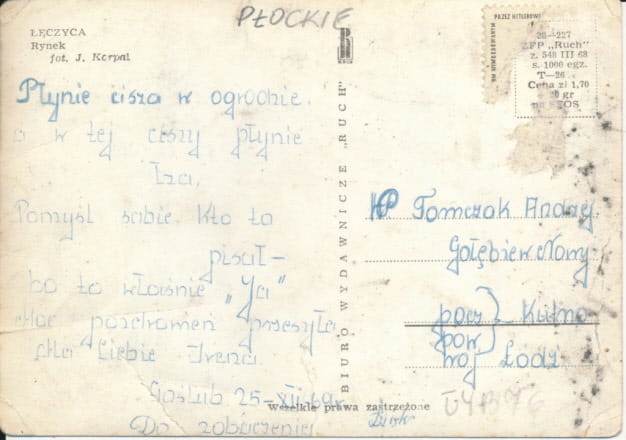 PŁOCKIE
ŁĘCZYCA
Rynek
fot. J. Korpal
PRZEZ HITLEROW
28—227
ZFP „Ruch"
z. 548 III 68
s. 1000 egz.
T—26
Cena zł 1,70
+ 20 gr
na SFOS
Płynie cisza w ogrodzie.
a w tej ciszy płynie
łza,
Pomyśl sobie. Kto to
pisał—
bo to właśnie „Ja"
moc pozdrowień przesyła
dla Ciebie Irena.
Goślub 25-XII 69r
Do zobaczenia
BIURO WYDAWNICZE „RUCH"
WP Tomczak Andrzej
Gołębiew Nowy
pocz
pow Kutno
woj Łódź
Wszelkie prawa zastrzeżone